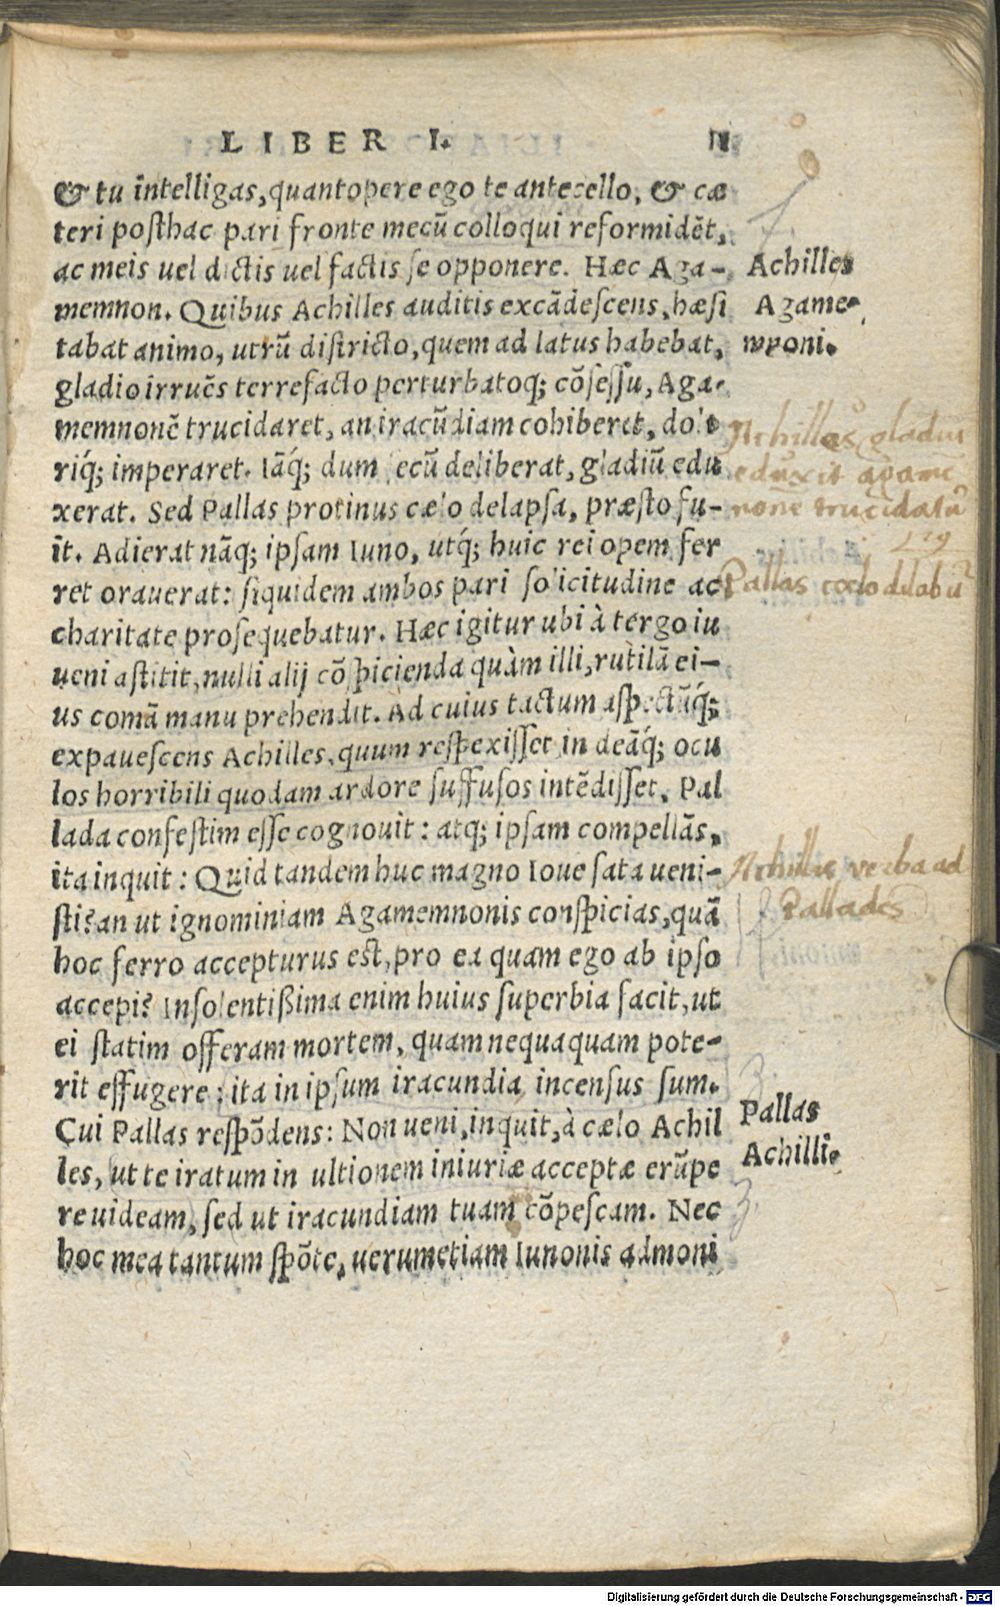 LIBER I.
& tu intelligas, quantopere ego te antecello, & cæ
teri posthac pari fronte mecũ colloqui reformidẽt,
ac meis uel dictis uel factis se opponere. Hæc Aga-
memnon. Quibus Achilles auditis excãdescens, hæsi
tabat animo, utrũ districto, quem ad latus habebat,
gladio irruẽs terrefacto perturbatoq; cõsessu, Aga-
memnonẽ trucidaret, an iracũdiam cohiberet, dolo
riq́; imperaret. Iãq́; dum secũ deliberat, gladiũ edu
xerat. Sed Pallas protinus cælo delapsa, præsto fu-
it. Adierat nãq; ipsam Iuno, utq́; huic rei opem fer
ret orauerat: siquidem ambos pari solicitudine ac
charitate prosequebatur. Hæc igitur ubi à tergo iu
ueni astitit, nulli alij cõspicienda quàm illi, rutilã ei-
us comã manu prehendit. Ad cuius tactum aspectũq́;
expauescens Achilles, quum respexisset in deãq́; ocu
los horribili quodam ardore suffusos intẽdisset, Pal
lada confestim esse cognouit: atq; ipsam compellãs,
ita inquit: Quid tandem huc magno Ioue sata ueni-
sti? an ut ignominiam Agamemnonis conspicias, quã
hoc ferro accepturus est, pro ea quam ego ab ipso
accepi? Insolentißima enim huius superbia facit, ut
ei statim offeram mortem, quam nequaquam pote-
rit effugere; ita in ipsum iracundia incensus sum.
Cui Pallas respõdens: Non ueni, inquit, à cælo Achil
les, ut te iratum in ultionem iniuriæ acceptæ erũpe
re uideam, sed ut iracundiam tuam cõpescam. Nec
hoc mea tantum spõte, uerumetiam Iunonis admoni
Achilles
Agame-
mnoni.
Achilles gladiũ
eduxit agamẽ
nonẽ trucidatũ
Pallas cœlo dilabũ
Achillis verba ad
Palladẽ
Pallas
Achilli.
Digitalisierung gefördert durch die Deutsche Forschungsgemeinschaft - DFG